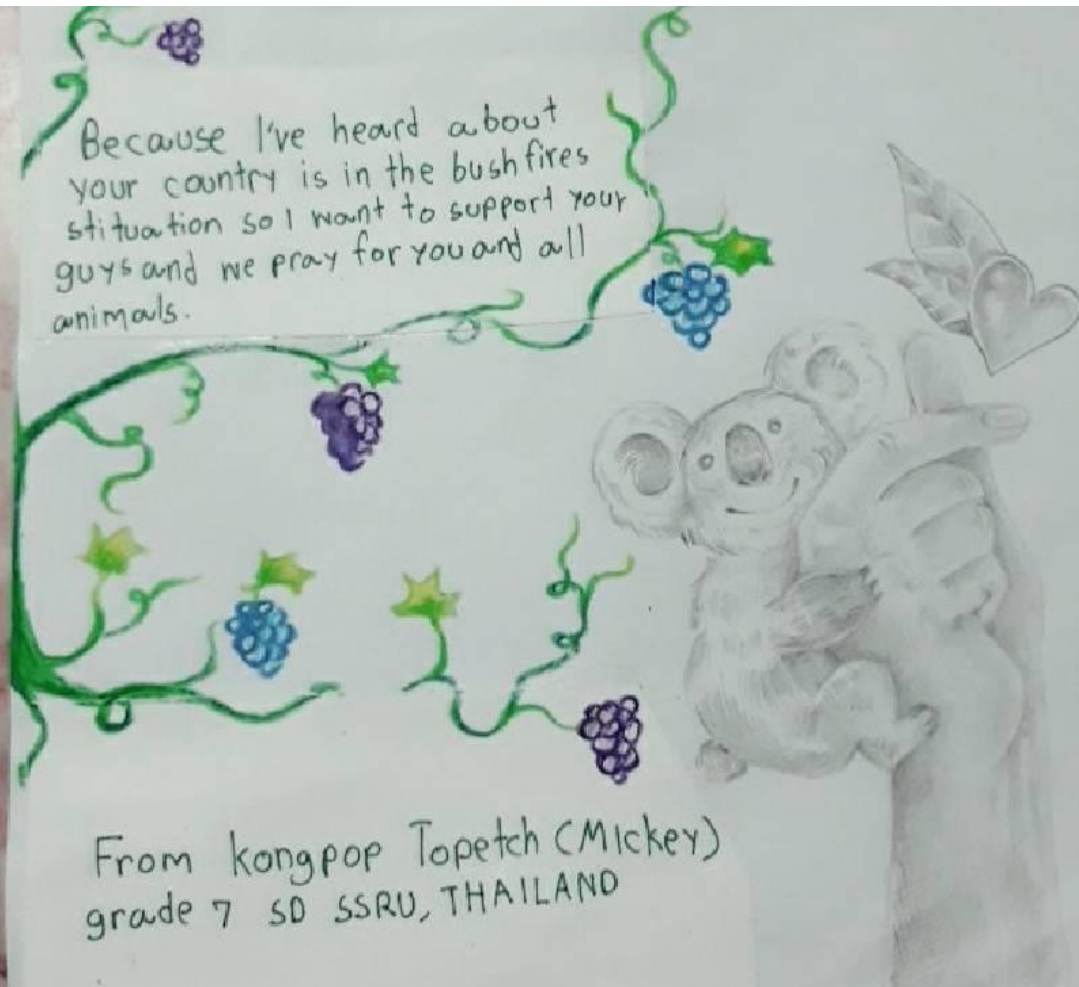 Because I've heard about
your country is in the bushfires
stituation so I want to support your
guys and we pray for you and all
animals.
From kongpop Topetch (Mickey)
grade 7 SD SSRU, THAILAND